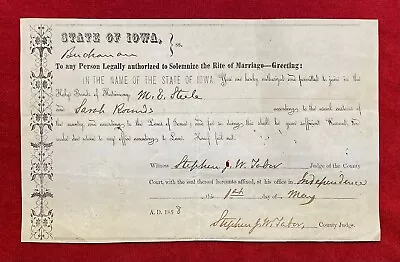 STATE OF IOWA,
Buchanan } ss.
To any Person Legally authorized to Solemnize the Rite of Marriage—Greeting:
IN THE NAME OF THE STATE OF IOWA. You are hereby authorized and permitted to join in the
Holy Bands of Matrimony M. E. Steele
and Sarah Rounds according to the usual customs of
the country, and according to the Laws of Iowa; and for so doing, this shall be your sufficient Warrant,
under due return to my office according to Law. Hereof fail not.
Witness Stephen J. W. Tabor Judge of the County
Court, with the seal thereof hereunto affixed, at his office in Independence
this 1st day of May
A. D. 1858
Stephen J. W. Tabor, County Judge.